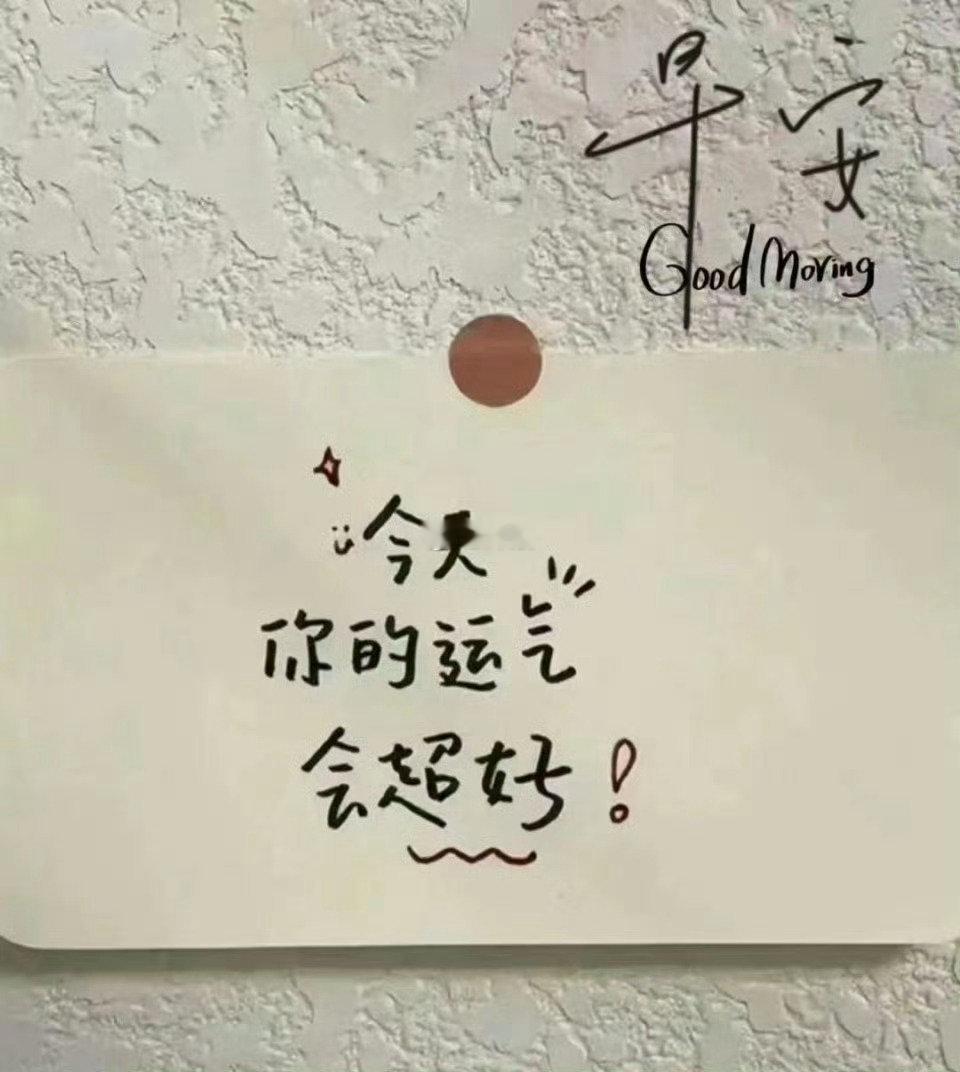 早安
Good Moring
今天
你的运气
会超好!